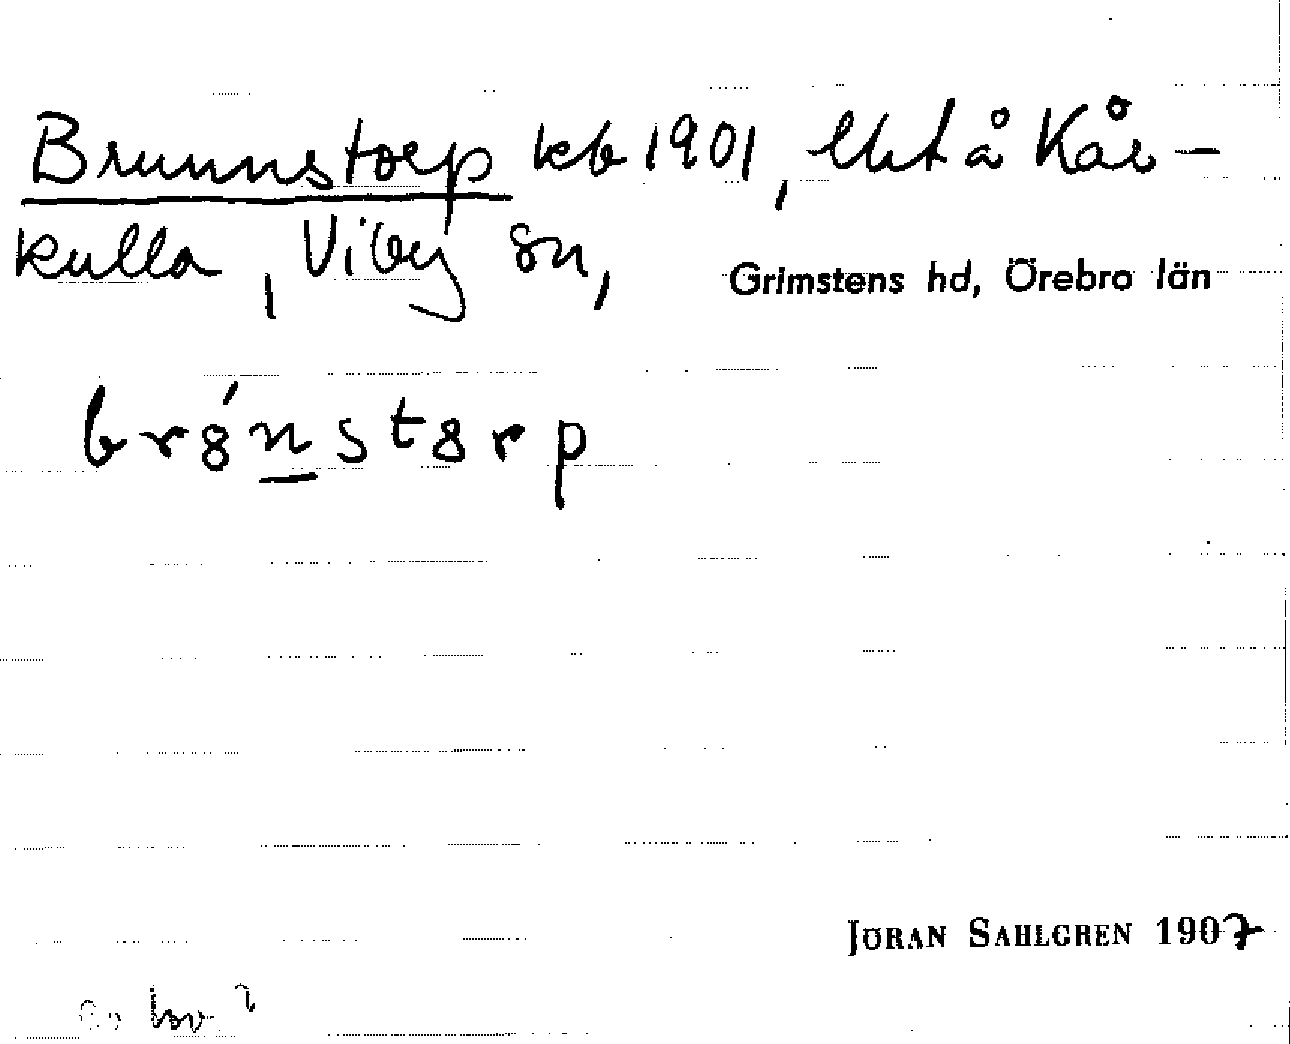 Brunnstorp kb 1901, lht å Kår-
kulla, Viby sn, Grimstens hd, Örebro län
br8́n̲st8rp
JÖRAN SAHLGREN 1907